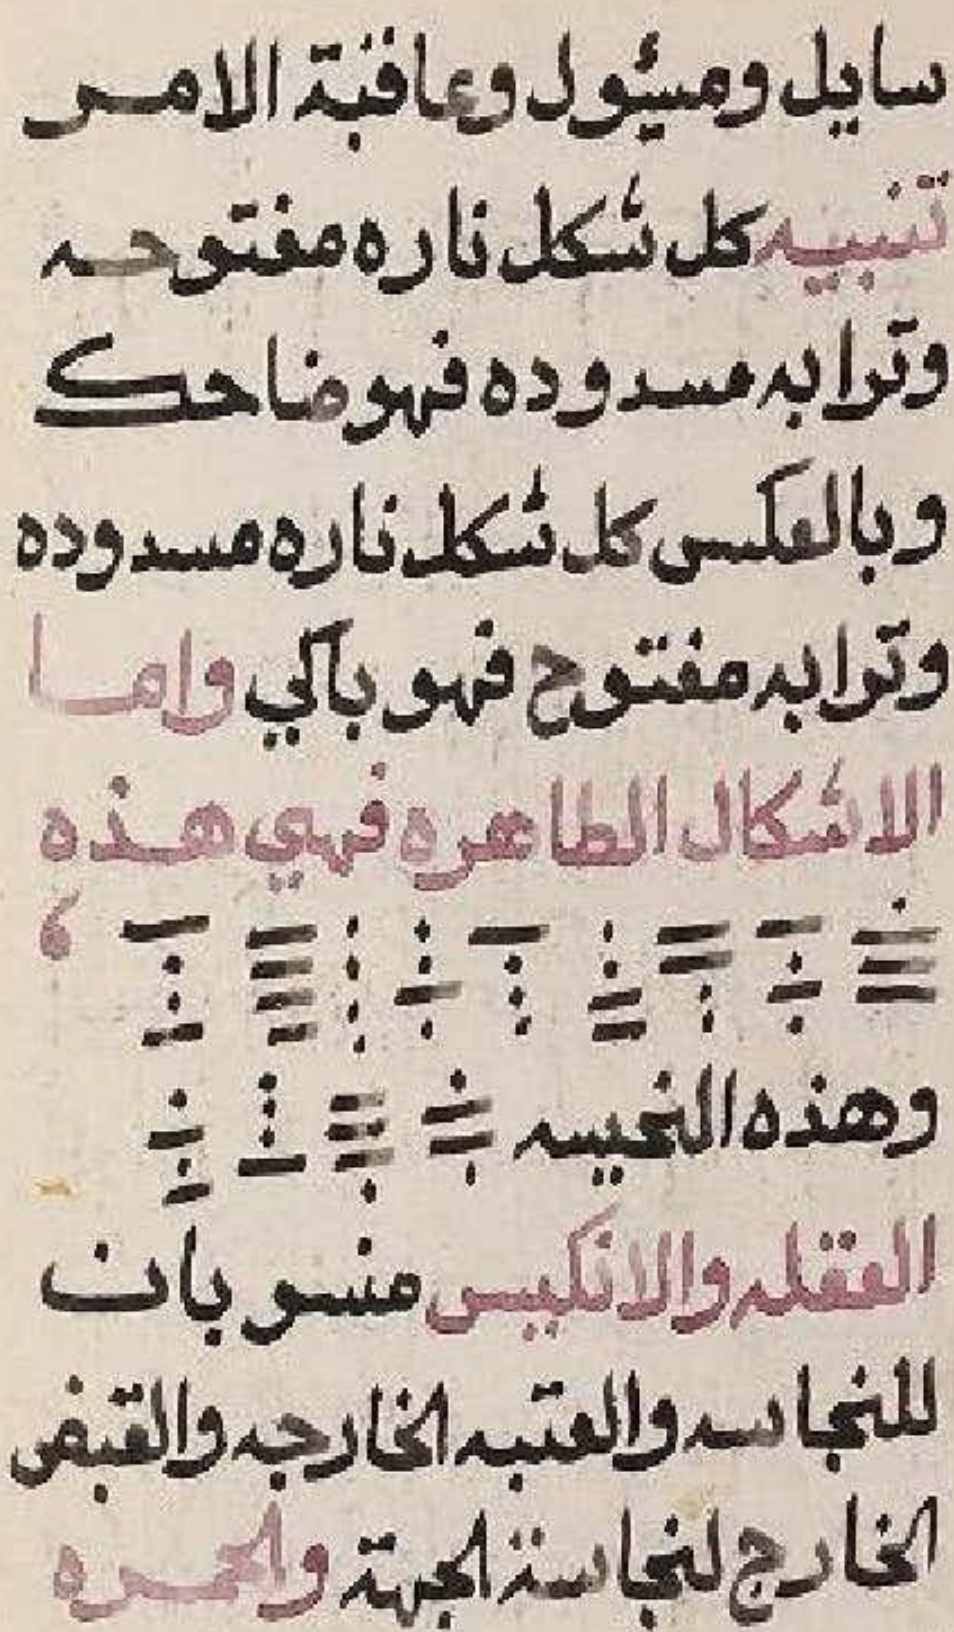 سايل ومسٔول وعاقبة الامر
تنبيه كل شكل ناره مفتوحه
وترابه مسدوده فهو ضاحك
وبالعكس كل شكل ناره مسدوده
وترابه مفتوح فهو باكي واما
الاشكال الطاهره فهي هذه
وهذه النجيسه
العقله والانكيس منسوبات
للنجاسه والعتبه الخارجه والقبض
الخارج لنجاسة الجهة والحمره